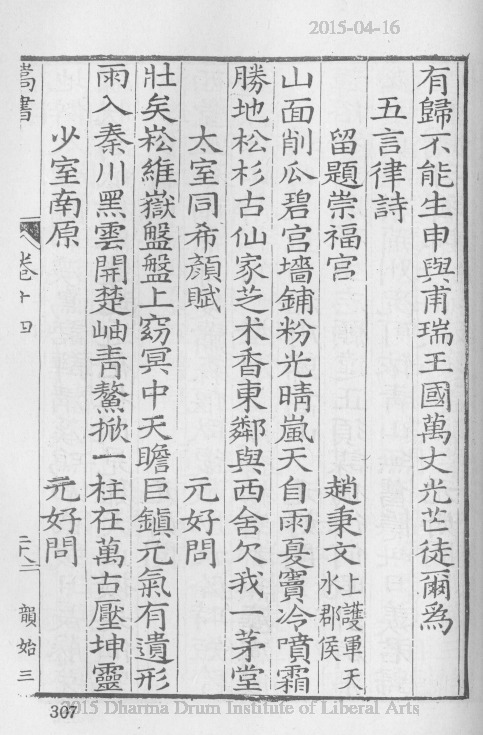 2015-04-16
有歸不能生申與甫瑞王國萬丈光芒徒爾爲
五言律詩
留題崇福宮 趙秉文 上護軍天水郡侯
山面削瓜碧宮墻鋪粉光晴嵐天自雨夏竇冷噴霜
勝地松杉古仙家芝术香東鄰與西舍欠我一茅堂
太室同希顏賦 元好問
壯矣崧維嶽盤盤上窈冥中天瞻巨鎮元氣有遺形
雨入秦川黑雲開楚岫靑鰲掀一柱在萬古壓坤靈
少室南原 元好問
嵩書 卷十四 韻始三
307
2015 Dharma Drum Institute of Liberal Arts